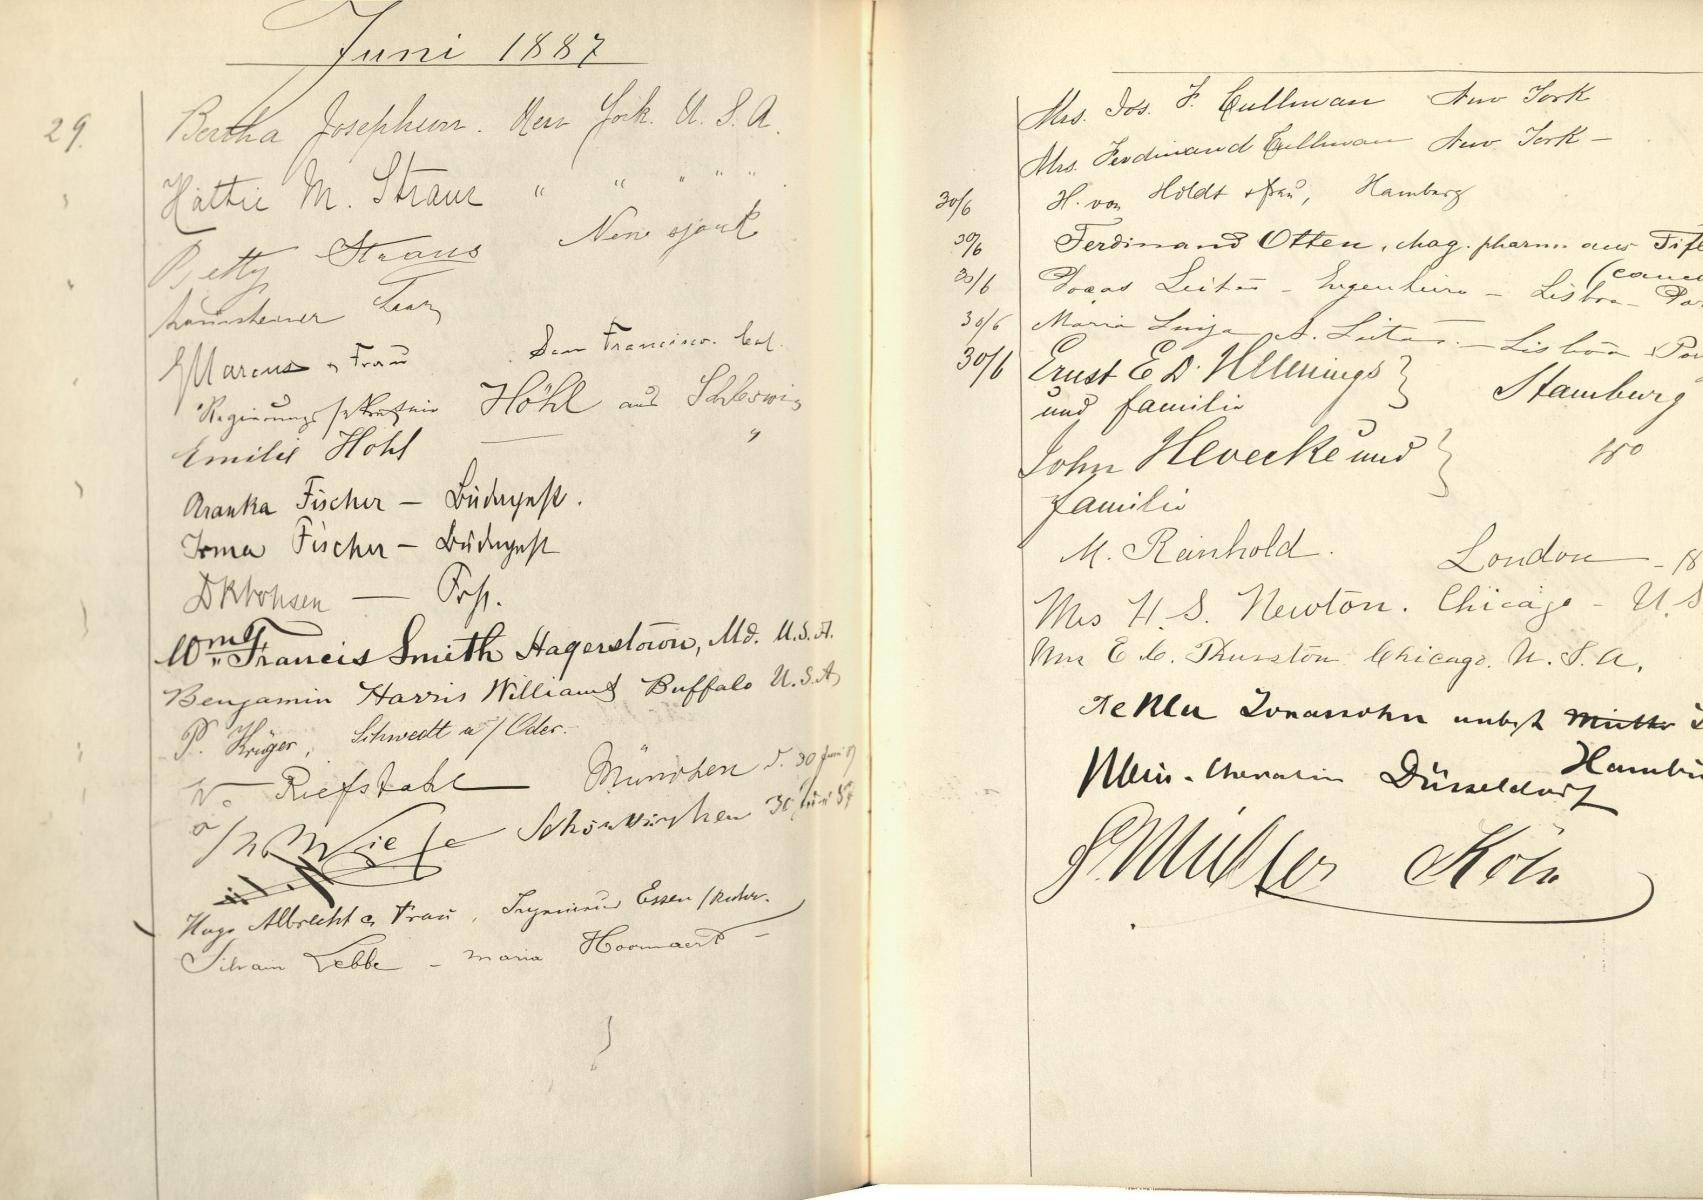 Juni 1887
29. Bertha Josephson. New York. U. S. A.
Hattie M. Straus " " " " "
Betty Straus New York
Frau
Marcus & Frau San Francisco. Cal.
Höhl aus Schleswig
Emilie Höhl "
Aranka Fischer — Budapest.
Irma Fischer — Budapest
— Pest.
Wm. Francis Smith Hagerstown, Md. U.S.A.
Benjamin Harris Williams Buffalo U.S.A
P. Krüger, Schwedt a/Oder.
Riefstahl München d. 30 Juni 87
Wiese Schönkirchen 30 Juni 87
Hugo Albrecht & Frau, Ingenieur Essen/Ruhr.
Silvain Lebbe - Maria Hoornaert -
Mrs. Jos. F. Cullman New York
Mrs. Ferdinand Cullman New York -
30/6 H. von Holdt & Frau, Hamburg
30/6 Ferdinand Otten, Mag. pharm. aus Tifl
30/6 Leitão - Engenheiro - Lisboa - Po
30/6 Maria Luiza A. Leitão - Lisboa - Po
30/6 Ernst E D. Hennings } Hamburg
und Familie
John Hevecke und } do
Familie
M. Reinhold. London - 18
Mrs H. S. Newton. Chicago - U.S
Mrs E. C. Thurston Chicago. U. S. A.
Tekla Jonassohn nebst Mutter
Hambu
Düsseldorf
Müller Köln